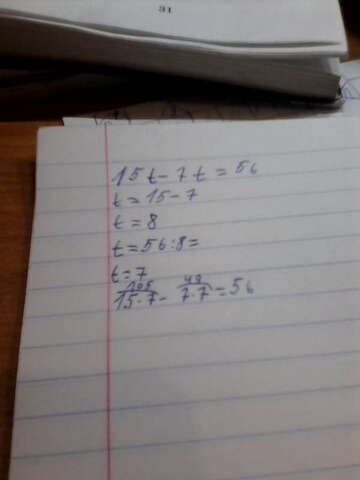 31
15t - 7t = 56
t = 15 - 7
t = 8
t = 56 : 8 =
t = 7
105 49
15·7 - 7·7 = 56